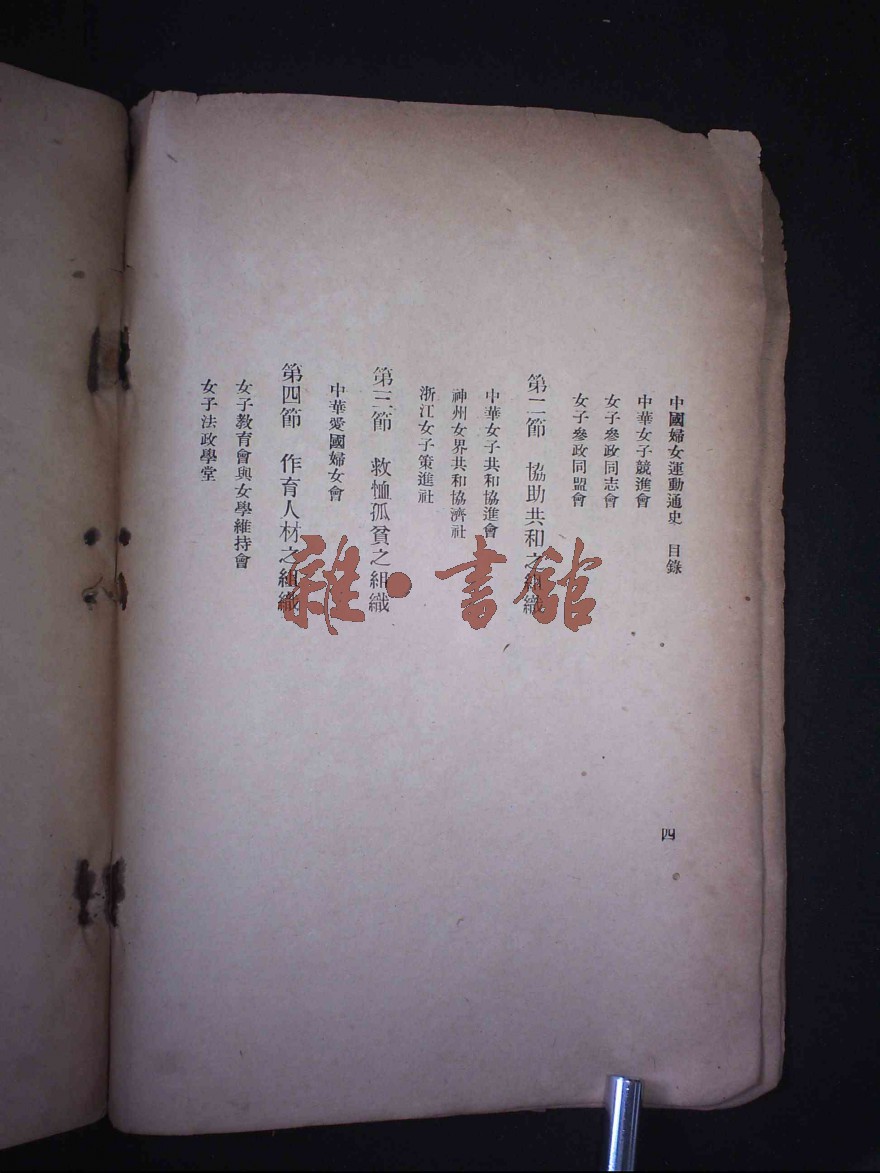 中國婦女運動通史　目錄
四
中華女子競進會
女子參政同志會
女子參政同盟會
第二節　協助共和之組織
中華女子共和協進會
神州女界共和協濟社
浙江女子策進社
第三節　救恤孤貧之組織
中華愛國婦女會
第四節　作育人材之組織
女子教育會與女學維持會
女子法政學堂
雜·書館